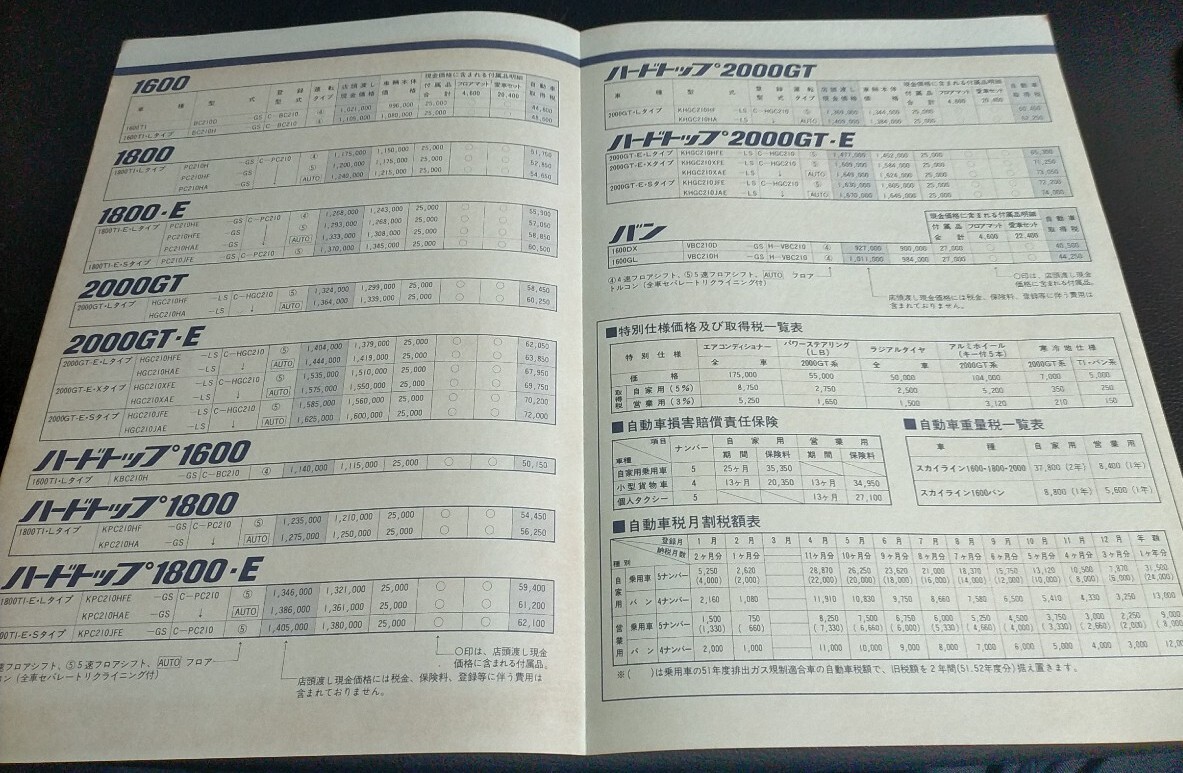 1600
車種 型式 登録型式 運転タイプ 店頭渡し現金価格 車輌本体価格 現金価格に含まれる付属品明細 自動車取得税
付属品合計 フロアマット 4,600 愛車セット 20,400
1600TI BC210D -GS C-BC210 ④ 1,021,000 996,000 25,000 ○ ○
1600TI・Lタイプ BC210H -GS C-BC210 ④ 1,105,000 1,080,000 25,000 ○ ○
1800
1800TI・Lタイプ PC210H -GS C-PC210 ④ 1,175,000 1,150,000 25,000 ○ ○ 51,750
PC210HF -GS ⑤ 1,200,000 1,175,000 25,000 ○ ○ 52,850
PC210HA -GS AUTO 1,240,000 1,215,000 25,000 ○ ○ 54,650
1800・E
1800TI-E・Lタイプ PC210HE -GS C-PC210 ④ 1,268,000 1,243,000 25,000 ○ ○
PC210HFE -GS 1,293,000 1,268,000 25,000 ○ ○ 57,050
PC210HAE -GS 1,333,000 1,308,000 25,000 ○ ○ 58,850
1800TI-E・Sタイプ PC210JFE -GS C-PC210 ⑤ 1,370,000 1,345,000 25,000 ○ ○ 60,500
2000GT
2000GT-Lタイプ HGC210HF -LS C-HGC210 ⑤ 1,324,000 1,299,000 25,000 ○ ○ 58,450
HGC210HA -LS AUTO 1,364,000 1,339,000 25,000 ○ ○ 60,250
2000GT・E
2000GT-E・Lタイプ HGC210HFE -LS C-HGC210 ⑤ 1,404,000 1,379,000 25,000 ○ ○ 62,050
HGC210HAE -LS ↓ AUTO 1,444,000 1,419,000 25,000 ○ ○ 63,850
2000GT-E・Xタイプ HGC210XFE -LS C-HGC210 ⑤ 1,535,000 1,510,000 25,000 ○ ○ 67,950
HGC210XAE -LS ↓ AUTO 1,575,000 1,550,000 25,000 ○ ○ 69,750
2000GT-E・Sタイプ HGC210JFE -LS C-HGC210 ⑤ 1,585,000 1,560,000 25,000 ○ ○ 70,200
HGC210JAE -LS ↓ AUTO 1,625,000 1,600,000 25,000 ○ ○ 72,000
ハードトップ1600
1600TI・Lタイプ KBC210H -GS C-BC210 ④ 1,140,000 1,115,000 25,000 ○ ○ 50,150
ハードトップ1800
1800TI・Lタイプ KPC210HF -GS C-PC210 ⑤ 1,235,000 1,210,000 25,000 ○ ○ 54,450
KPC210HA -GS ↓ AUTO 1,275,000 1,250,000 25,000 ○ ○ 56,250
ハードトップ1800・E
1800TI-E・Lタイプ KPC210HFE -GS C-PC210 ⑤ 1,346,000 1,321,000 25,000 ○ ○ 59,400
KPC210HAE -GS ↓ AUTO 1,386,000 1,361,000 25,000 ○ ○ 61,200
TI-E・Sタイプ KPC210JFE -GS C-PC210 ⑤ 1,405,000 1,380,000 25,000 ○ ○ 62,100
速フロアシフト、⑤5速フロアシフト、AUTO フロア
コン (全車セパレートリクライニング付)
○印は、店頭渡し現金
価格に含まれる付属品。
店頭渡し現金価格には税金、保険料、登録等に伴う費用は
含まれておりません。
ハードトップ2000GT
車種 型式 登録型式 運転タイプ 店頭渡し現金価格 車輌本体価格 現金価格に含まれる付属品明細 自動車取得税
付属品合計 フロアマット 4,600 愛車セット
2000GT-Lタイプ KHGC210HF -LS C-HGC210 ⑤ 1,369,000 1,344,000 25,000
KHGC210HA -LS ↓ AUTO 1,409,000 1,384,000 25,000
ハードトップ2000GT・E
2000GT-E・Lタイプ KHGC210HFE -LS C-HGC210 ⑤ 1,477,000 1,452,000 25,000
2000GT-E・Xタイプ KHGC210XFE -LS C-HGC210 ⑤ 25,000
KHGC210XAE -LS ↓ AUTO 1,649,000 1,624,000 25,000 73,050
2000GT-E・Sタイプ KHGC210JFE -LS C-HGC210 ⑤ 1,630,000 1,605,000 25,000
KHGC210JAE -LS ↓ AUTO 1,670,000 1,645,000 25,000
バン
現金価格に含まれる付属品明細 自動車取得税
付属品合計 フロアマット 4,600 愛車セット 22,400
1600DX VBC210D -GS H-VBC210 ④ 927,000 900,000 27,000 ○ ○ 40,500
1600GL VBC210H -GS H-VBC210 ④ 1,011,000 984,000 27,000 ○ ○ 44,250
④4速フロアシフト、⑤5速フロアシフト、AUTO フロア
トルコン (全車セパレートリクライニング付)
○印は、店頭渡し現金
価格に含まれる付属品。
店頭渡し現金価格には税金、保険料、登録等に伴う費用は
含まれておりません。
■特別仕様価格及び取得税一覧表
特別仕様 エアコンディショナー 全車 パワーステアリング(L.B) 2000GT系 ラジアルタイヤ 全車 アルミホイール(キー付5本) 2000GT系 寒冷地仕様 2000GT系 TI・バン系
価格 175,000 55,000 50,000 104,000 7,000 5,000
取得税 自家用 (5%) 8,750 2,750 2,500 5,200 350 250
営業用 (3%) 5,250 1,650 1,500 3,120 210 150
■自動車損害賠償責任保険
項目 車種 ナンバー 自家用 期間 保険料 営業用 期間 保険料
自家用乗用車 5 25ヶ月 35,350
小型貨物車 4 13ヶ月 20,350 13ヶ月 34,950
個人タクシー 5 13ヶ月 27,100
■自動車重量税一覧表
車種 自家用 営業用
スカイライン1600・1800・2000 37,800 (2年) 8,400 (1年)
スカイライン1600バン 8,800 (1年) 5,600 (1年)
■自動車税月割税額表
登録月 1月 2月 3月 4月 5月 6月 7月 8月 9月 10月 11月 12月 年額
種別 納税月数 2ヶ月分 1ヶ月分 11ヶ月分 10ヶ月分 9ヶ月分 8ヶ月分 7ヶ月分 6ヶ月分 5ヶ月分 4ヶ月分 3ヶ月分 1ヶ年分
自家用 乗用車 5ナンバー 5,250 2,620 28,870 26,250 23,620 21,000 18,370 15,750 13,120 10,500 7,870 31,500
(4,000) (2,000) (22,000) (20,000) (18,000) (16,000) (14,000) (12,000) (10,000) (8,000) (6,000) (24,000)
バン 4ナンバー 2,160 1,080 11,910 10,830 9,750 8,660 7,580 6,500 5,410 4,330 3,250 13,000
営業用 乗用車 5ナンバー 1,500 750 8,250 7,500 6,750 6,000 5,250 4,500 3,750 3,000 2,250 9,000
(1,330) (660) (7,330) (6,660) (6,000) (5,330) (4,660) (4,000) (3,330) (2,660) (2,000)
バン 4ナンバー 2,000 1,000 11,000 10,000 9,000 8,000 7,000 6,000 5,000 4,000 3,000
※( )は乗用車の51年度排出ガス規制適合車の自動車税額で、旧税額を2年間(51.52年度分)据え置きます。